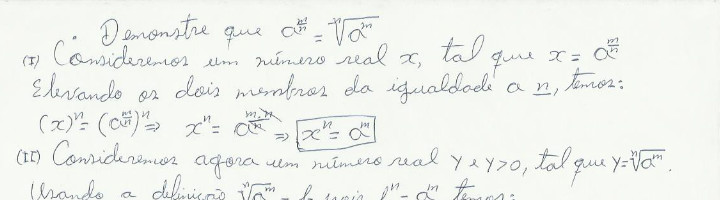 Demonstre que a^(m/n) = ⁿ√a^m
(I) Consideremos um número real x, tal que x = a^(m/n)
Elevando os dois membros da igualdade a n, temos:
(x)^n = (a^(m/n))^n ⇒ x^n = a^(m.n/n) ⇒ x^n = a^m
(II) Consideremos agora um número real y e y>0, tal que y = ⁿ√a^m.
Usando a definição ⁿ√a^m = b, pois b^n = a^m temos: